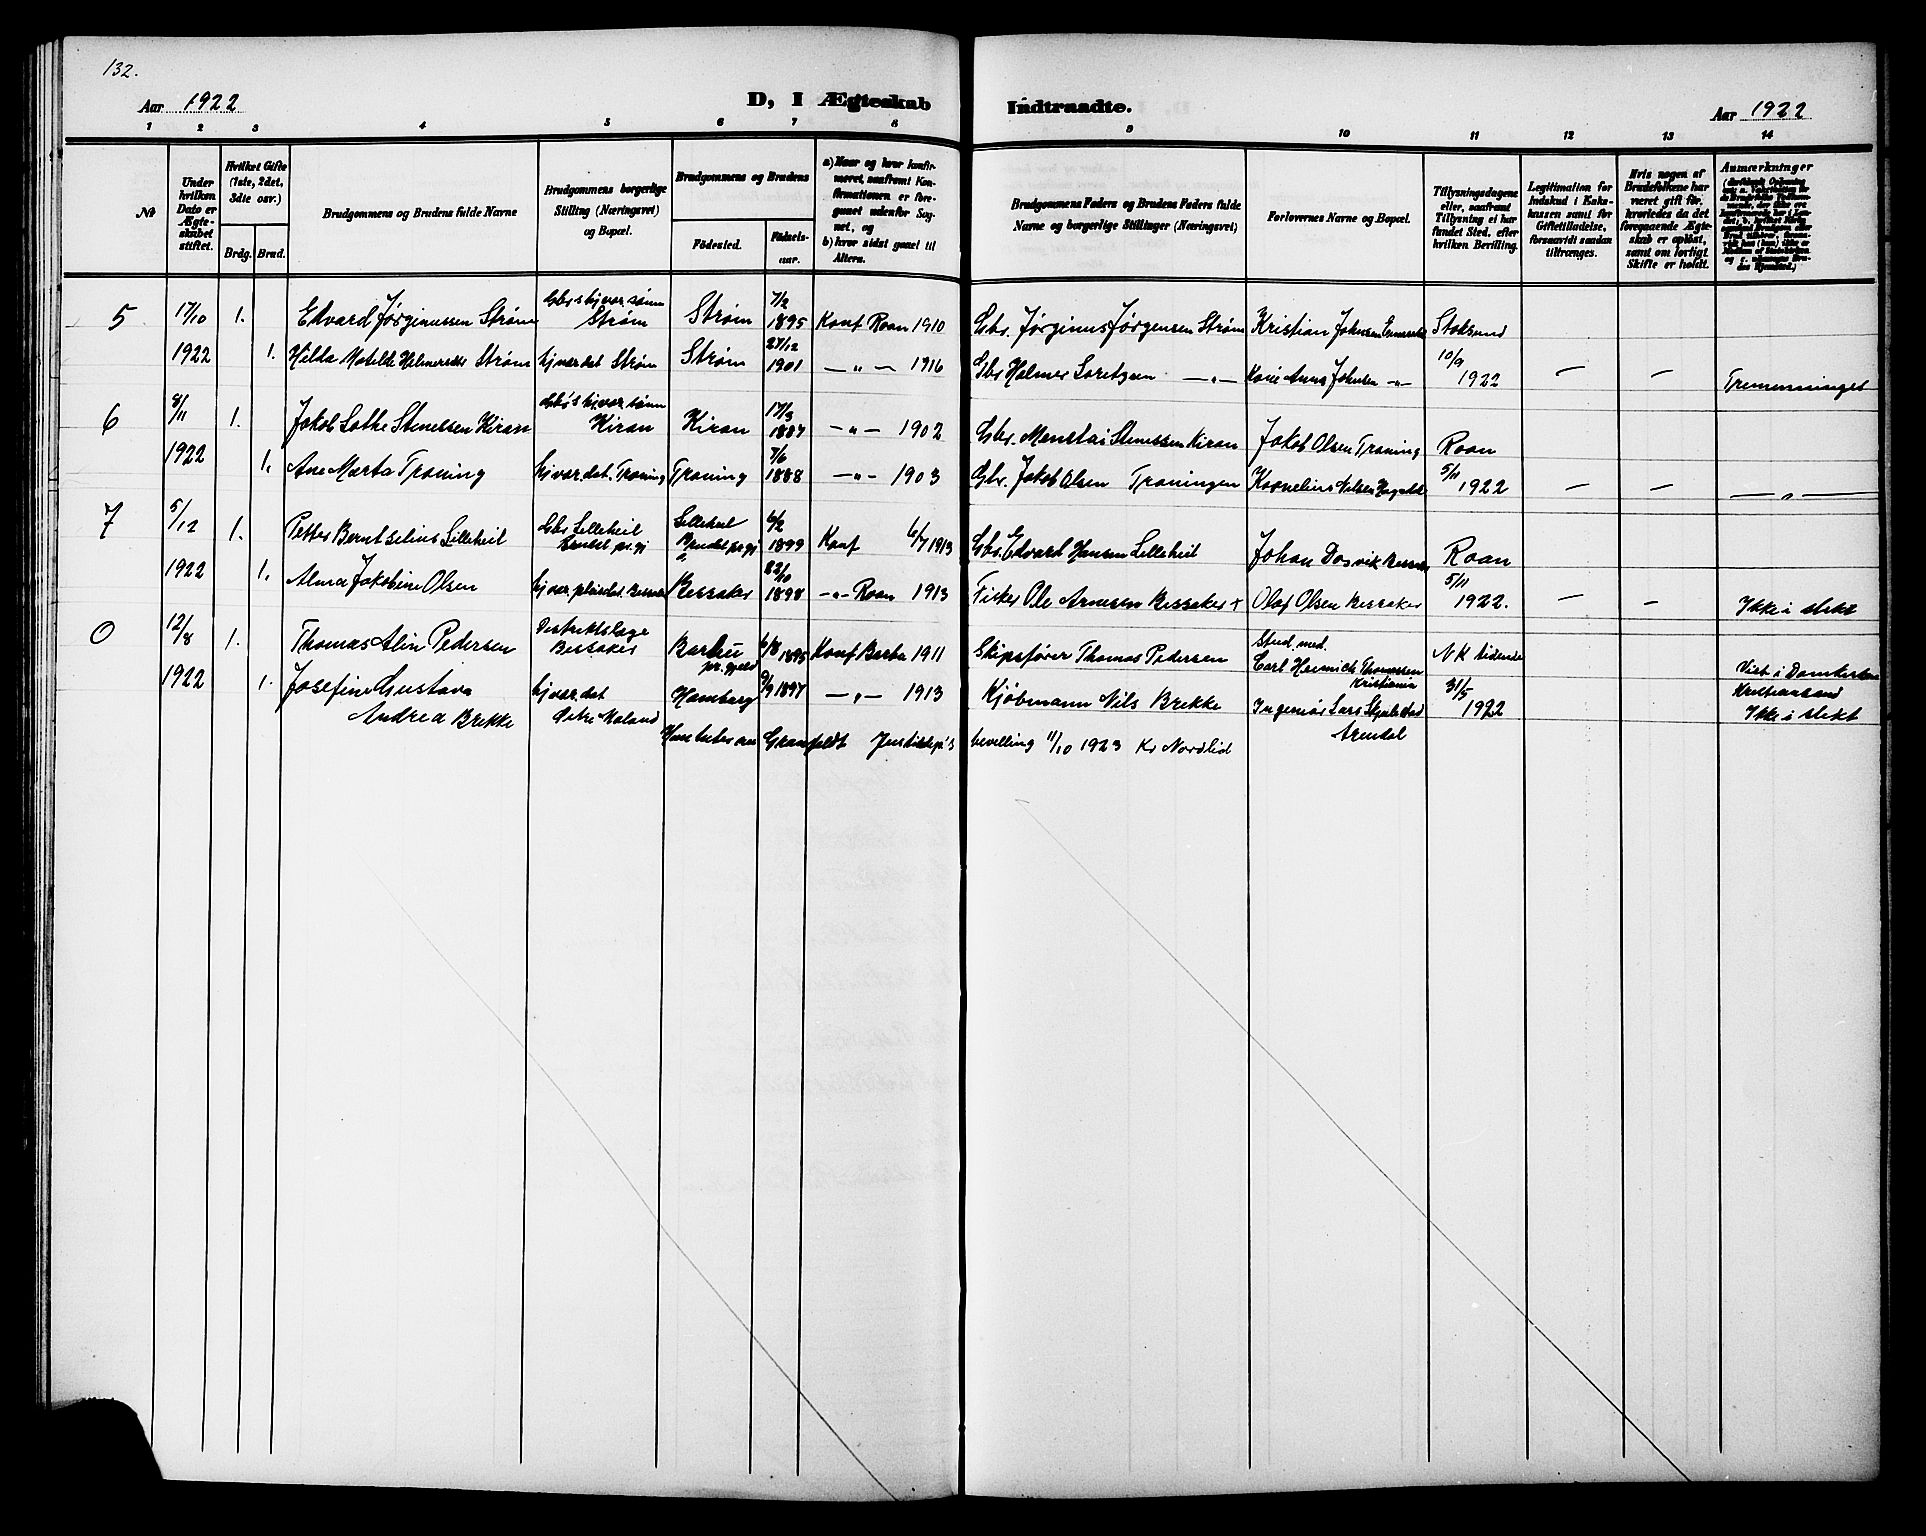 132.
Aar 1922
D, I Ægteskab Indtraadte.
Aar 1922
1 2 3 4 5 6 7 8 9 10 11 12 13 14
№
Under hvilken Dato er Ægteskabet stiftet.
Hvilket Gifte (1ste, 2det, 3die osv.)
Brdg. Brud.
Brudgommens og Brudens fulde Navne
Brudgommens borgerlige Stilling (Næringsvei) og Bopæl.
Brudgommens og Brudens
Fødested.
Fødsels-aar.
a) Naar og hvor konfirmeret, saafremt Konfirmationen er foregaaet udenfor Sognet, og
b) hvor sidst gaaet til Alters.
Brudgommens Faders og Brudens Faders fulde Navne og borgerlige Stillinger (Næringsvei)
Forlovernes Navne og Bopæl.
Tillysningsdagene eller, saafremt Tillysning ei har fundet Sted, efter hvilken Bevilling.
Legitimation for Indskud i Enkekassen samt for Giftetilladelse, forsaavidt saadan tiltrænges.
Hvis nogen af Brudefolkene har været gift før, hvorledes da det foregaaende Ægteskab er opløst, samt om lovligt Skifte er holdt.
Anmærkninger
5 17/10 1. Edvard Jørginussen Strøm Gbrs hjvær. sønn Strøm Strøm 7/2 1895 Konf Roan 1910 Gbr. Jørginus Jørgensen Strøm Kristian Johnsen Stoksund
1922 1. Hilda Matilde Helmersdtr Strøm hjvær. dat Strøm Strøm 27/12 1901 — " — 1916 Gbr Holmer Loretsen — " — Karie Anna Johnsen — " — 10/9 1922 — — Tremenninget
6 8/11 1. Jakob Lothe Stenessen Kiran hjvær. sønn Kiran Kiran 17/3 1887 — " — 1902 Gbr. Menstai Stenessen Kiran Jakob Olsen Traning Roan
1922 1. Ane Marta Traning hjvær. dat. Traning Traning 7/6 1888 — " — 1903 Gbr. Jakob Olsen Traningen Kornelius Nilsen 5/11 1922 — — — " —
7 5/12 1. Petter Berntselius Lilleheil Gbr Lilleheil pr.gj Lilleheil pr.gj 6/2 1899 Konf 6/7 1913 Gbr. Edvard Hansen Lilleheil Johan Dosvik Roan
1922 1. Alma Jakobine Olsen hjvær. pleiedat. Bessaker 22/10 1898 — " — Roan 1913 Fisker Ole Arnesen Bessaker + Olaf Olsen Bessaker 5/11 1922. — — Ikke i slekt
0 12/8 1. Thomas Alin Pedersen Distriktslæge Bessaker Barbu pr.gjeld 6/8 1895 Konf Barbu 1911 Skipsfører Thomas Pedersen Stud. med. Carl Heinrich Thomassen Kristiania NK tidende
1922 1. Josefine Gustava hjvær. dat Hamburg 9/9 1897 — " — 1913 Kjøbmann Nils Brekke Ingeniør Lars 31/5 1922 Viet i Domkirken Kristiansand
Andrea Brekke Østre Moland Arendal Ikke i slekt
bevilling 11/10 1923 Kr Nordlid